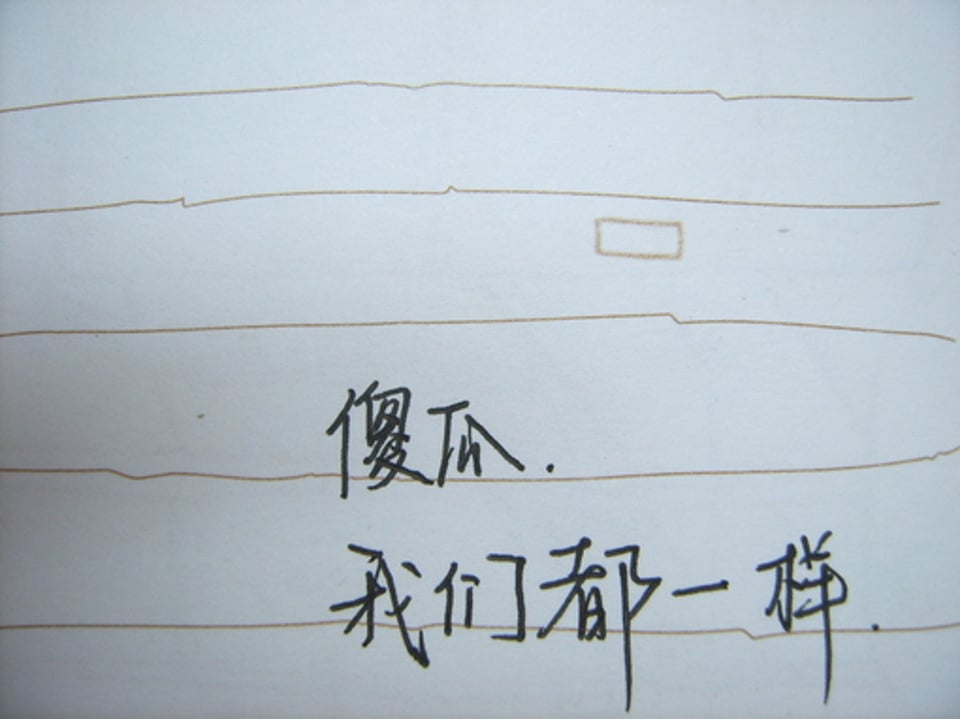 傻瓜.
我们都一样.